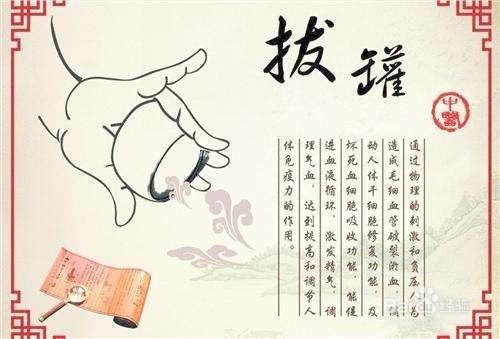 拔罐
中醫
通过物理的刺激和负压人为
造成毛细血管破裂淤血，调
动人体干细胞修复功能，及
坏死血细胞吸收功能，能促
进血液循环，激发精气，调
理气血，达到提高和调节人
体免疫力的作用。
Baidu经验